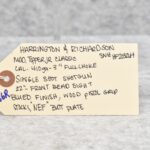 HARRINGTON & RICHARDSON
MOD. TOPPER JR CLASSIC SN#
CAL. 410ga - 3" FULL CHOKE
SINGLE SHOT SHOTGUN
22" FRONT BEAD SIGHT
BLUED FINISH, WOOD PISTOL GRIP
STOCK, "NEF" BUTT PLATE